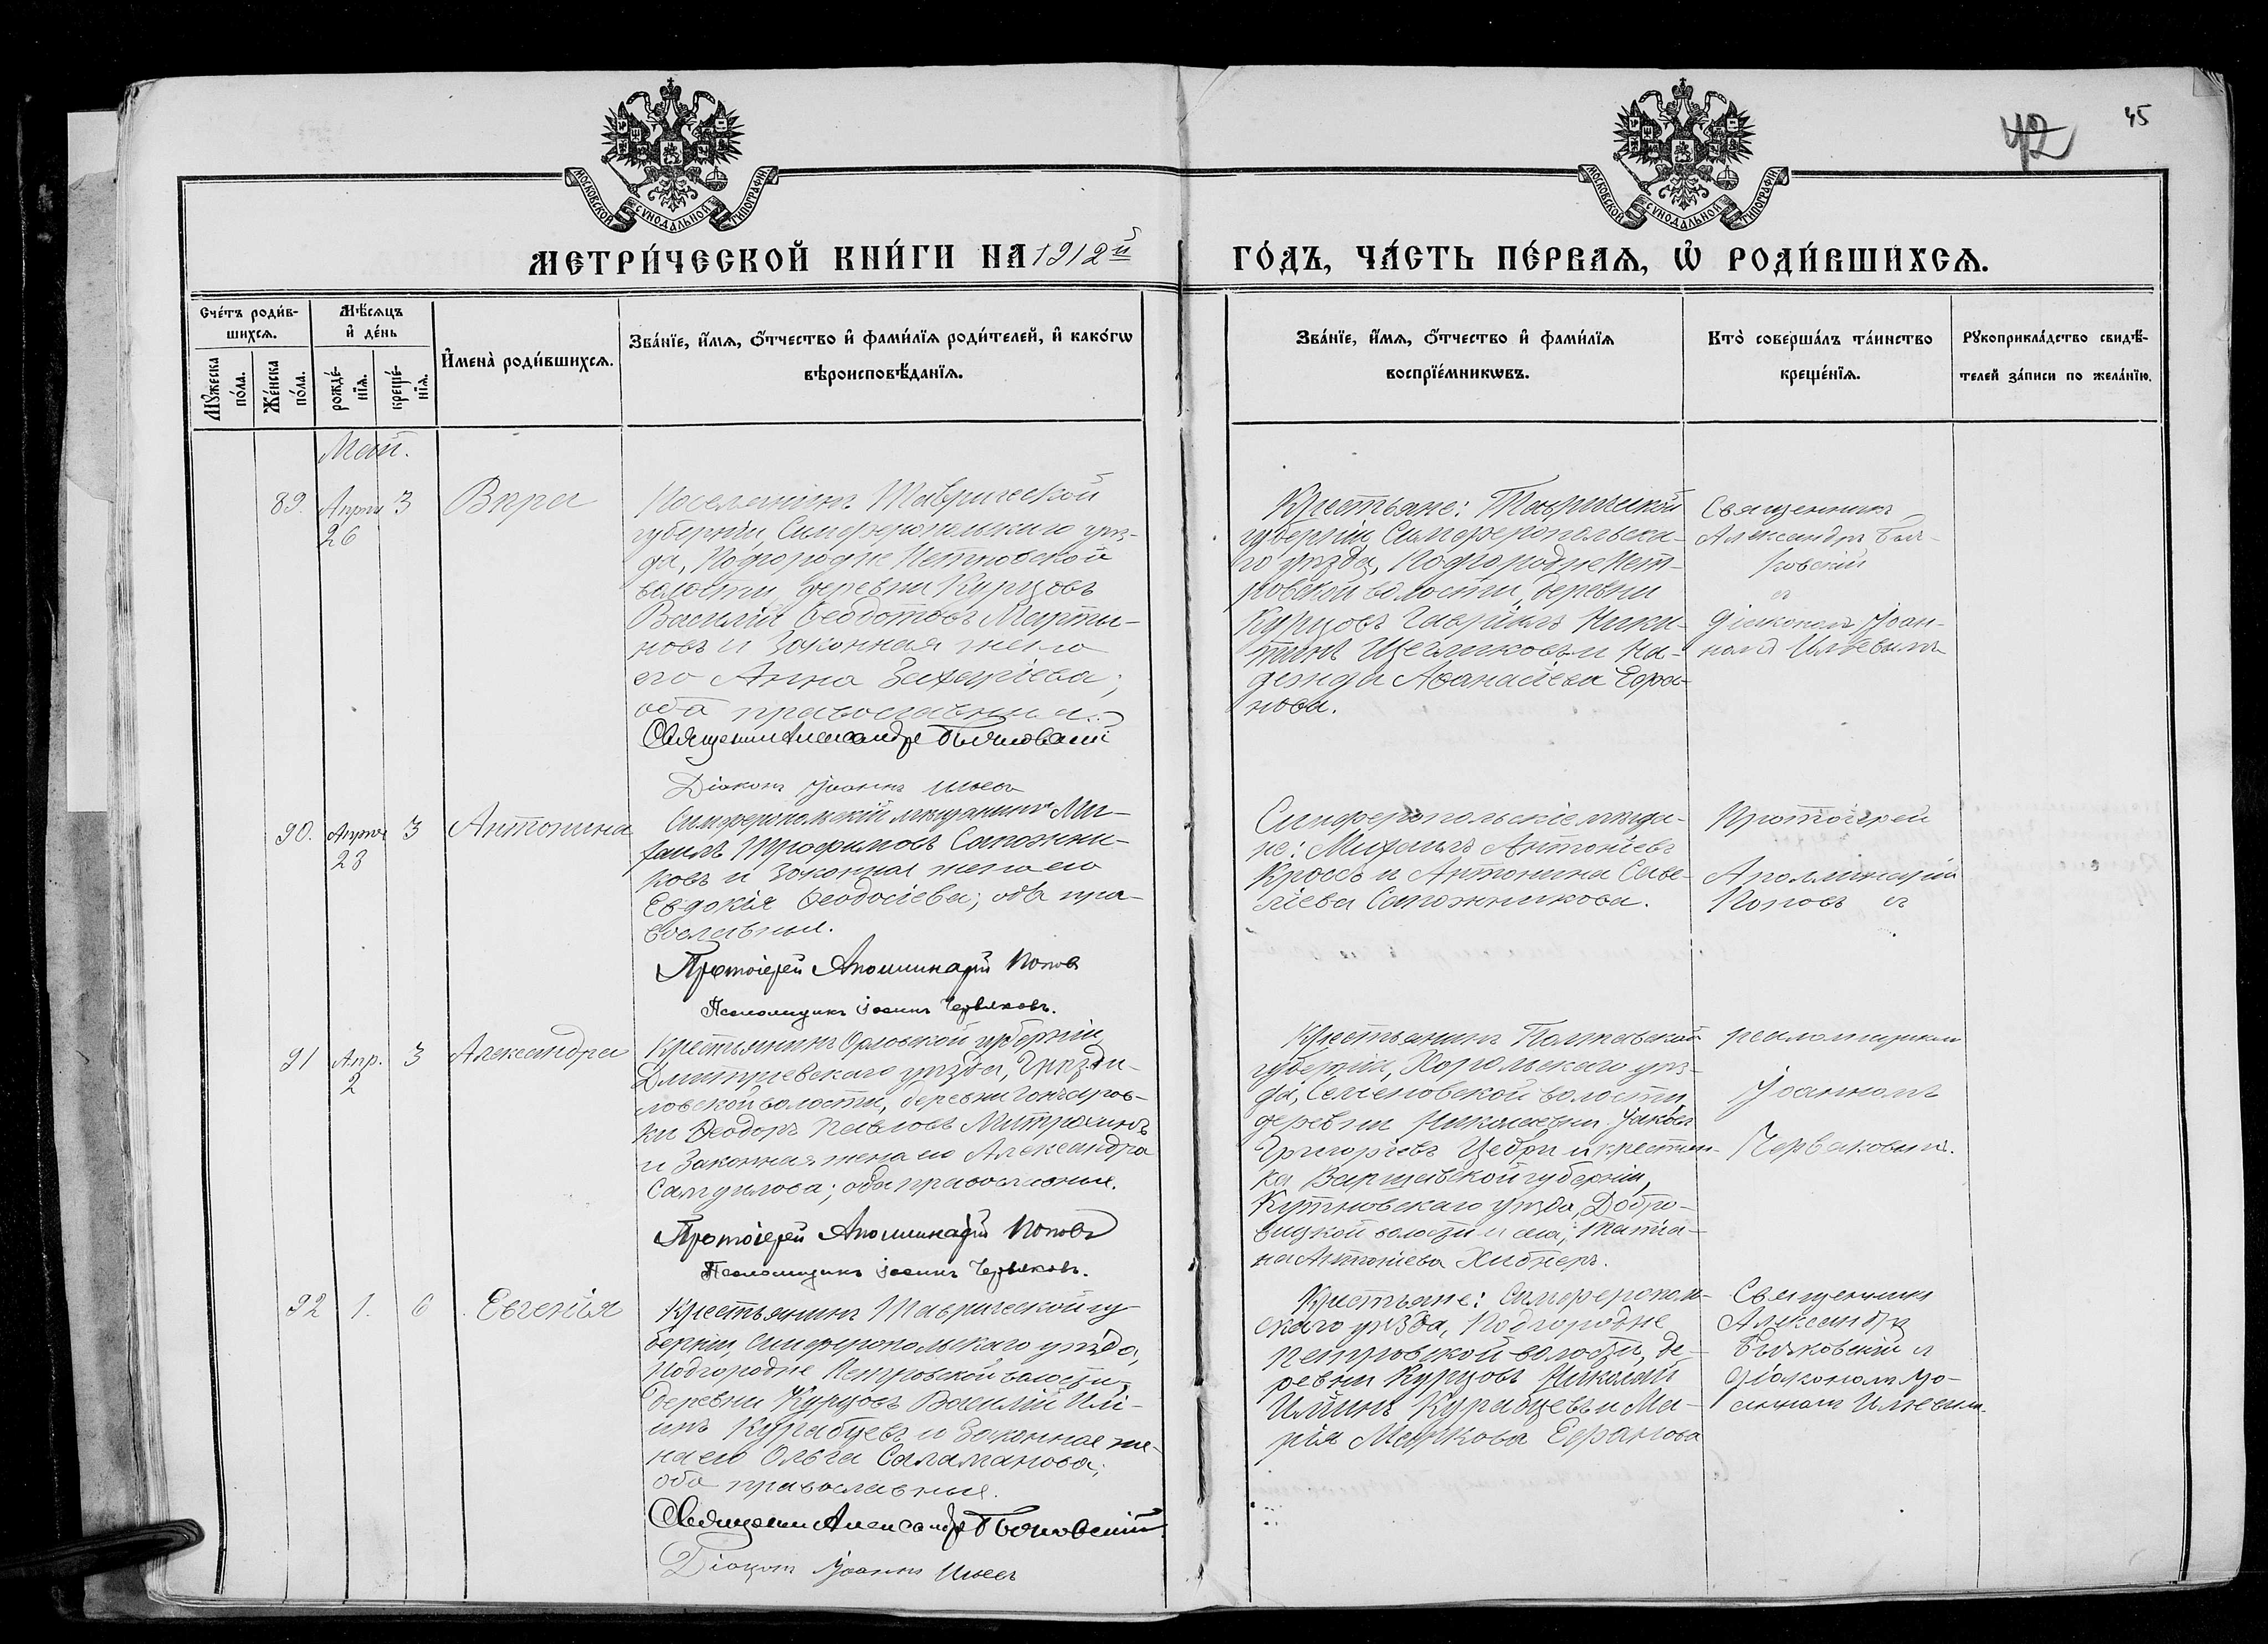 42
45
МОСКОВСКОЙ СѴНОДАЛЬНОЙ ТИПОГРАФІИ
МОСКОВСКОЙ СѴНОДАЛЬНОЙ ТИПОГРАФІИ
МЕТРИ́ЧЕСКОЙ КНИ́ГИ НА 1912й
ГО́ДЪ, ЧА́СТЬ ПЕ́РВАѦ, Ѡ҆ РОДИ́ВШИХСѦ.
Сче́тъ роди́в-
шихсѧ.
Мꙋ́жеска
по́ла.
Же́нска
по́ла.
Мѣ́сѧцъ
и҆ де́нь
рожде́-
нїѧ.
креще́-
нїѧ.
И҆мена̀ роди́вшихсѧ.
Зва́нїе, и҆́мѧ, ѻ҆́тчество и҆ фами́лїѧ роди́телей, и҆ како́гѡ
вѣроисповѣ́данїѧ.
Зва́нїе, и҆́мѧ, ѻ҆́тчество и҆ фами́лїѧ
воспрїе́мникѡвъ.
Кто̀ соверша́лъ та́инство
креще́нїѧ.
Рꙋкоприкла́дство свидѣ́-
телей за́писи по жела́нїю.
Май.
89. Апрѣл 26 3 Вѣра
Поселянинъ Таврической
губерніи, Симферопольскаго уѣз-
да, Подгородне Петровской
волости, деревни Курцовъ
Василій Ѳеодотовъ Марты-
новъ и законная жена
его Анна Захаріева;
оба православные.
Священник Александръ
Діаконъ Іоаннъ Ильевъ
Крестьяне: Таврической
губерніи Симферопольска-
го уѣзда, Подгородне Пет-
ровской волости, деревни
Курцовъ Гавріилъ Ники-
тинъ Щегликовъ и На-
дежда Аѳанасіева Ефра-
нова.
Священникъ
Александръ
ковскій
съ
діакономъ Іоан-
номъ Ильевымъ
90. Апрѣл 23 3 Антонина
Симферопольскій мѣщанинъ Ми-
хаилъ Трофимовъ Сапожни-
ковъ и законная жена его
Евдокія Ѳеодосіева; оба пра-
вославные.
Протоіерей Аполлинарій Поповъ
Псаломщикъ Іоаннъ Червяковъ.
Симферопольскіе мѣща-
не: Михаилъ Антоніевъ
Кроссъ и Антонина Саве-
ліева Сапожникова.
Протоіерей
Аполлинарій
Поповъ съ
91 Апр. 2 3 Александра
Крестьянинъ Орловской губерніи,
Дмитріевскаго уѣзда, Гнѣзди-
ловской волости, деревни Гончаров-
ки Ѳеодоръ Павловъ Митрохинъ
и законная жена его Александра
Самуилова; оба православные.
Протоіерей Аполлинарій Поповъ
Псаломщикъ Іоаннъ Червяковъ.
Крестьянинъ Полтавской
губерніи, Хорольскаго уѣз-
да, Семеновской волости,
деревни Николаевки Іаковъ
Григорьевъ Цебри и крестьян-
ка Варшавской губерніи,
Кутновскаго уѣзда, Добро-
вицкой волости и села, Татіа-
на Антоніева Хибнеръ.
псаломщикомъ
Іоанномъ
Червяковымъ.
92 1. 6 Евгенія
Крестьянинъ Таврической гу-
берніи, Симферопольскаго уѣзда,
Подгородне Петровской волости,
деревни Курцовъ Василій Иль-
инъ Курабцевъ и законная же-
на его Ольга Саламанова;
оба православные.
Священник Александръ
Діаконъ Іоаннъ Ильевъ
Крестьяне: Симферополь-
скаго уѣзда, Подгородне
Петровской волости, де-
ревни Курцовъ Николай
Ильинъ Курабцевъ и Ма-
рія Маркова Ефранова
Священникъ
Александръ
ковскій съ
діакономъ Іо-
анномъ Ильевым.